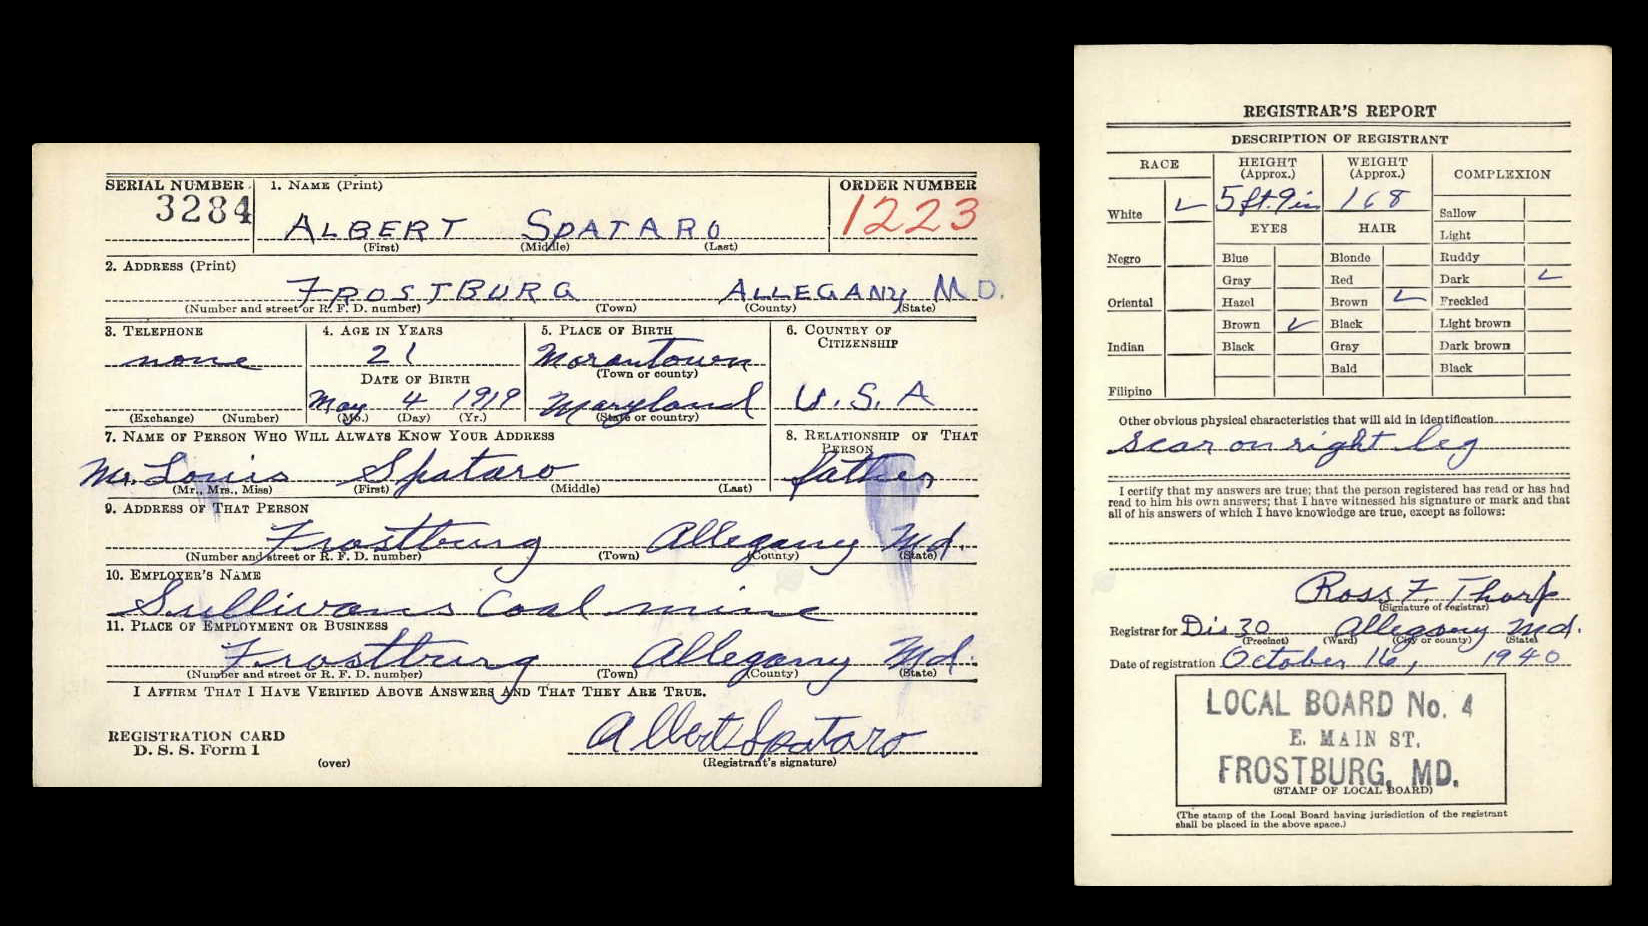 SERIAL NUMBER 1. NAME (Print) ORDER NUMBER
3284 ALBERT SPATARO 1223
(First) (Middle) (Last)
2. ADDRESS (Print)
FROSTBURG ALLEGANY MD.
(Number and street or R. F. D. number) (Town) (County) (State)
3. TELEPHONE 4. AGE IN YEARS 5. PLACE OF BIRTH 6. COUNTRY OF CITIZENSHIP
none 21 Morantown
(Town or county)
DATE OF BIRTH
May 4 1919 Maryland U.S.A
(Exchange) (Number) (Mo.) (Day) (Yr.) (State or country)
7. NAME OF PERSON WHO WILL ALWAYS KNOW YOUR ADDRESS 8. RELATIONSHIP OF THAT PERSON
Mr. Louis Spataro father
(Mr., Mrs., Miss) (First) (Middle) (Last)
9. ADDRESS OF THAT PERSON
Frostburg Allegany Md.
(Number and street or R. F. D. number) (Town) (County) (State)
10. EMPLOYER'S NAME
Sullivans Coal mine
11. PLACE OF EMPLOYMENT OR BUSINESS
Frostburg Allegany Md.
(Number and street or R. F. D. number) (Town) (County) (State)
I AFFIRM THAT I HAVE VERIFIED ABOVE ANSWERS AND THAT THEY ARE TRUE.
REGISTRATION CARD
D. S. S. Form 1
Albert Spataro
(over) (Registrant's signature)
REGISTRAR'S REPORT
DESCRIPTION OF REGISTRANT
RACE HEIGHT (Approx.) WEIGHT (Approx.) COMPLEXION
White ✓ 5 ft. 9 in 168 Sallow
EYES HAIR Light
Negro Blue Blonde Ruddy
Gray Red Dark ✓
Oriental Hazel Brown ✓ Freckled
Brown ✓ Black Light brown
Indian Black Gray Dark brown
Bald Black
Filipino
Other obvious physical characteristics that will aid in identification
scar on right leg
I certify that my answers are true; that the person registered has read or has had
read to him his own answers; that I have witnessed his signature or mark and that
all of his answers of which I have knowledge are true, except as follows:
Ross F. Thorp
(Signature of registrar)
Registrar for Dis 30 Allegany Md.
(Precinct) (Ward) (City or county) (State)
Date of registration October 16, 1940
LOCAL BOARD No. 4
E. MAIN ST.
FROSTBURG, MD.
(STAMP OF LOCAL BOARD)
(The stamp of the Local Board having jurisdiction of the registrant
shall be placed in the above space.)